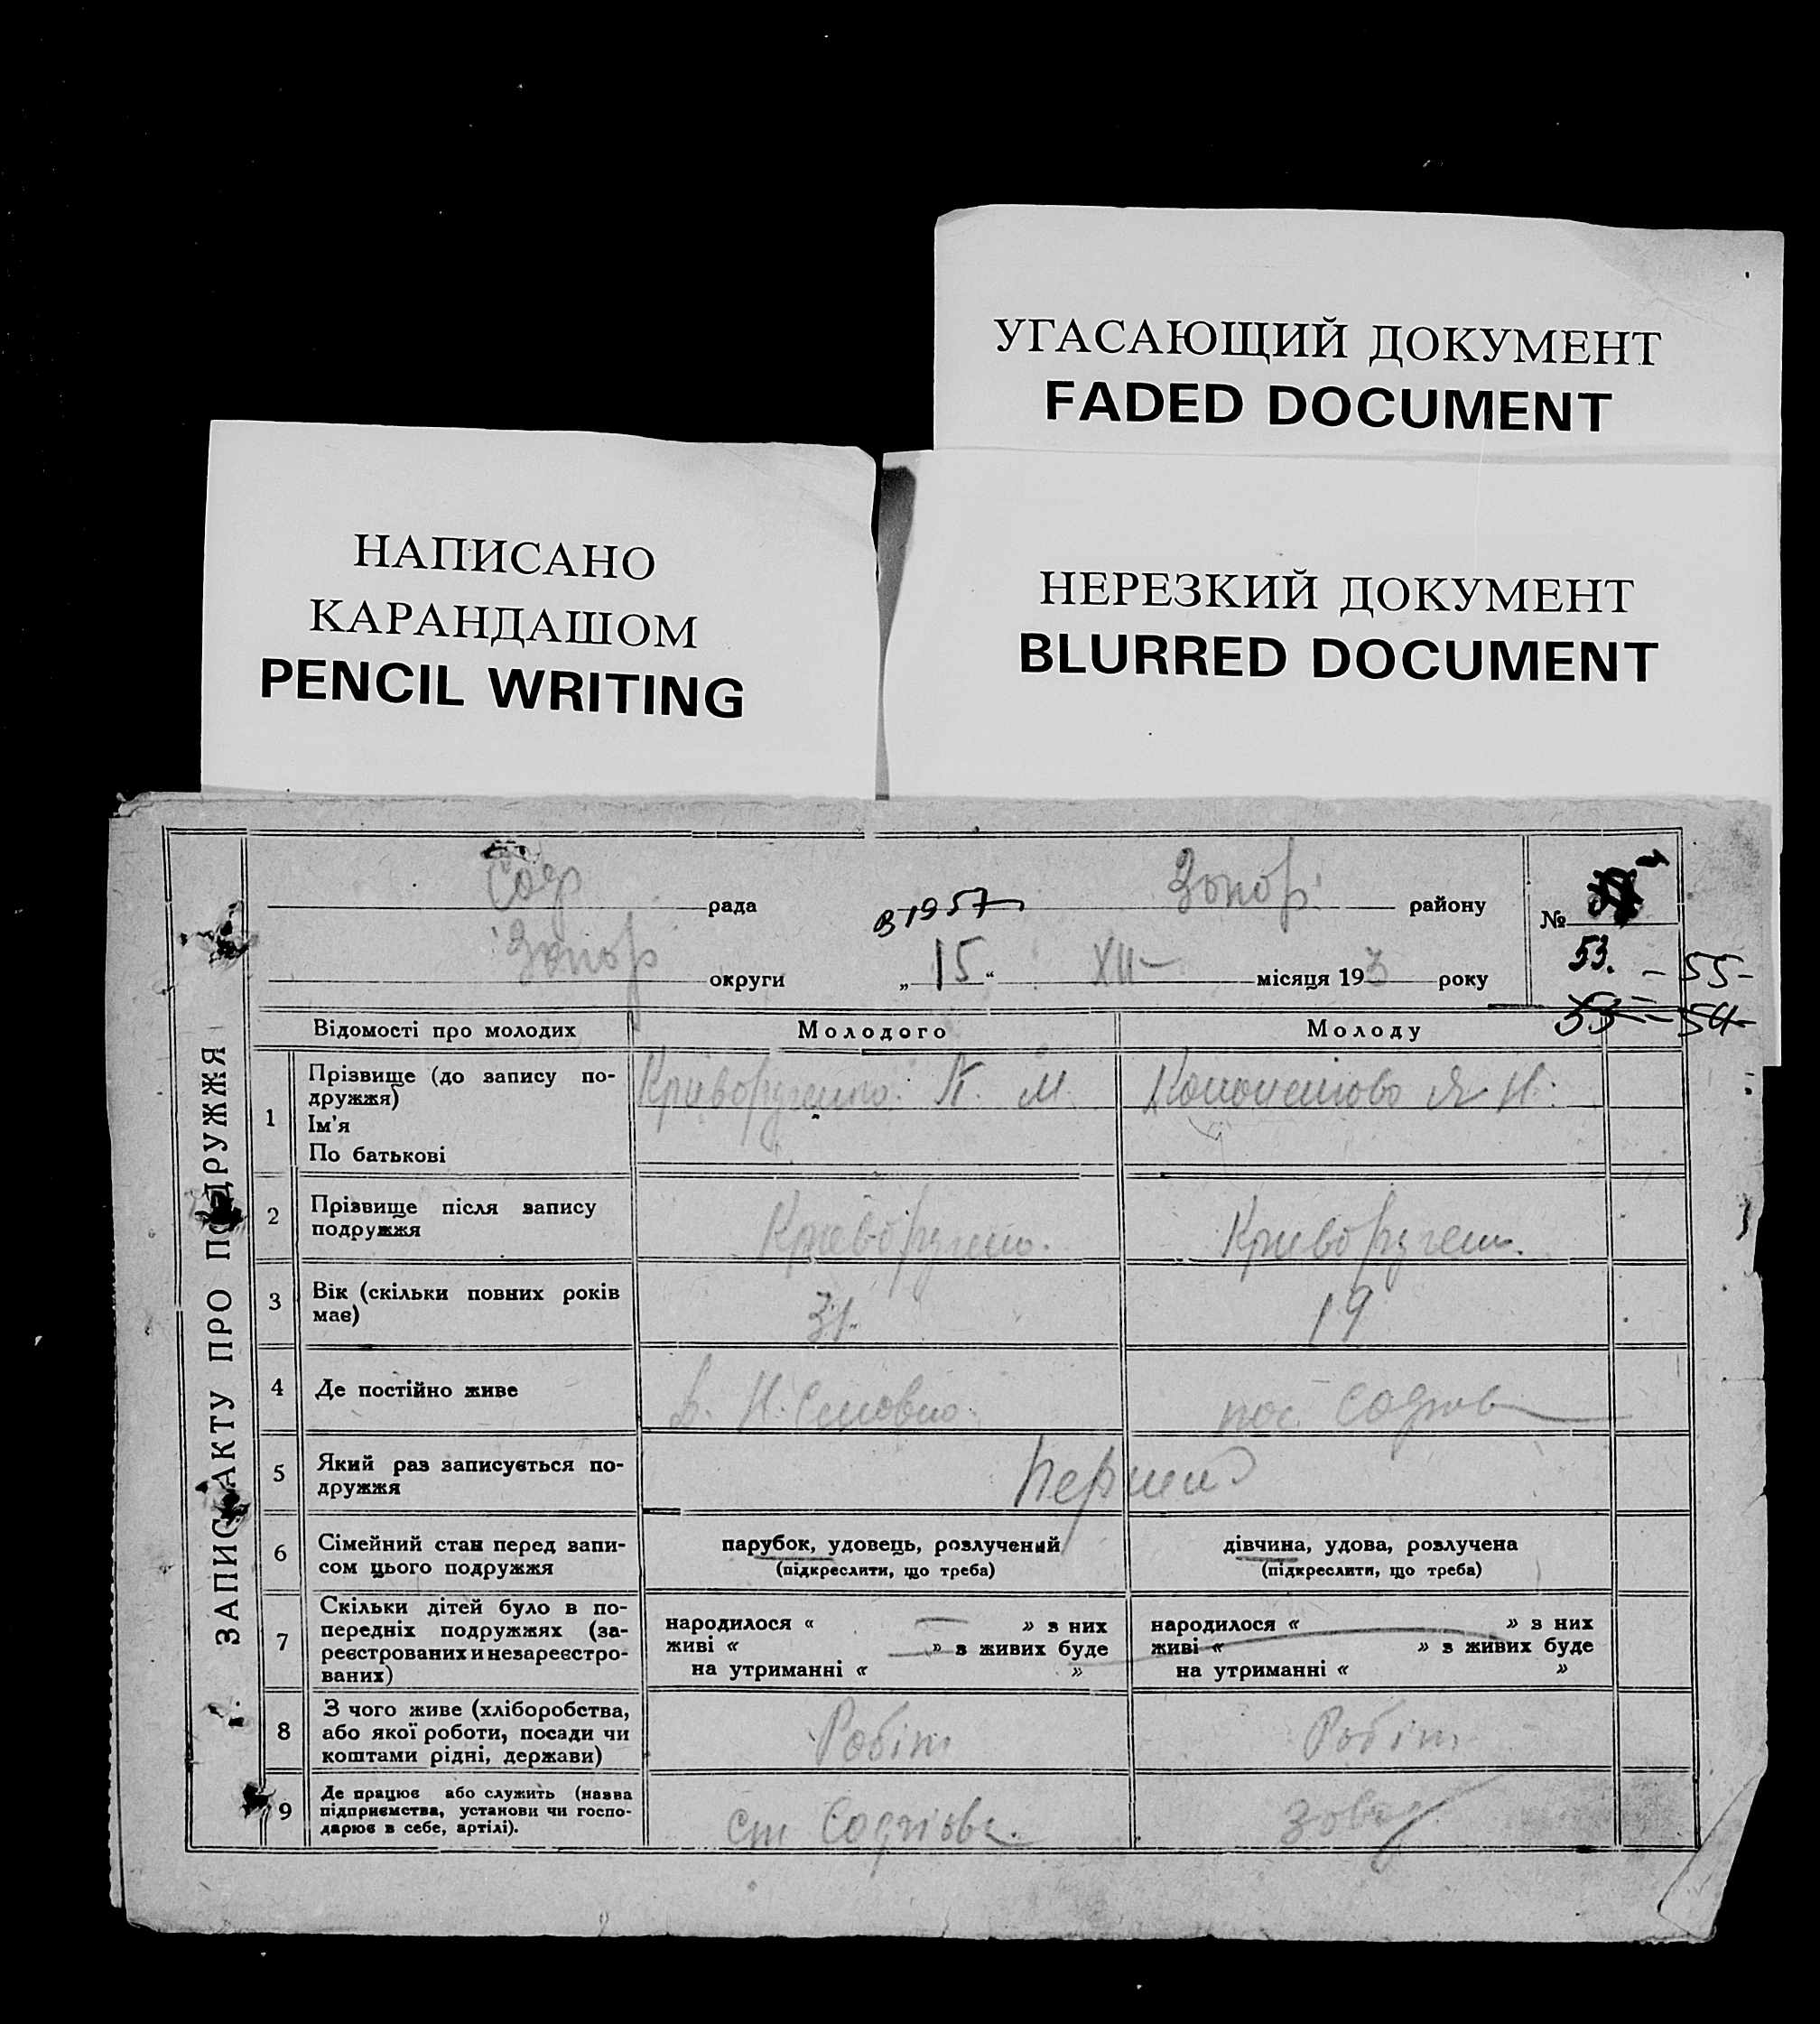 УГАСАЮЩИЙ ДОКУМЕНТ
FADED DOCUMENT
НАПИСАНО
КАРАНДАШОМ
PENCIL WRITING
НЕРЕЗКИЙ ДОКУМЕНТ
BLURRED DOCUMENT
ЗАПИС АКТУ ПРО ПОДРУЖЖЯ
рада В 1957 Запор. району №
Запор округи „ 15 “ XII місяця 193 року 53. - 55-
53 - 54
Відомості про молодих Молодого Молоду
1 Прізвище (до запису по-
дружжя)
Ім'я
По батькові
Криворученко. М. Я Н.
2 Прізвище після запису
подружжя
Криворученко. Криворученко.
3 Вік (скільки повних років
має)
31. 19
4 Де постійно живе
пос.
5 Який раз записується по-
дружжя
Перший
6 Сімейний стан перед запи-
сом цього подружжя
парубок, удовець, розлучений
(підкреслити, що треба)
дівчина, удова, розлучена
(підкреслити, що треба)
7 Скільки дітей було в по-
передніх подружжях (за-
реєстрованих и незареєстро-
ваних)
народилося « » з них
живі « » з живих буде
на утриманні « »
народилося « » з них
живі « » з живих буде
на утриманні « »
8 З чого живе (хліборобства,
або якої роботи, посади чи
коштами рідні, держави)
Робіт Робіт
9 Де працює або служить (назва
підприємства, установи чи госпо-
дарює в себе, артілі).
ст Завод